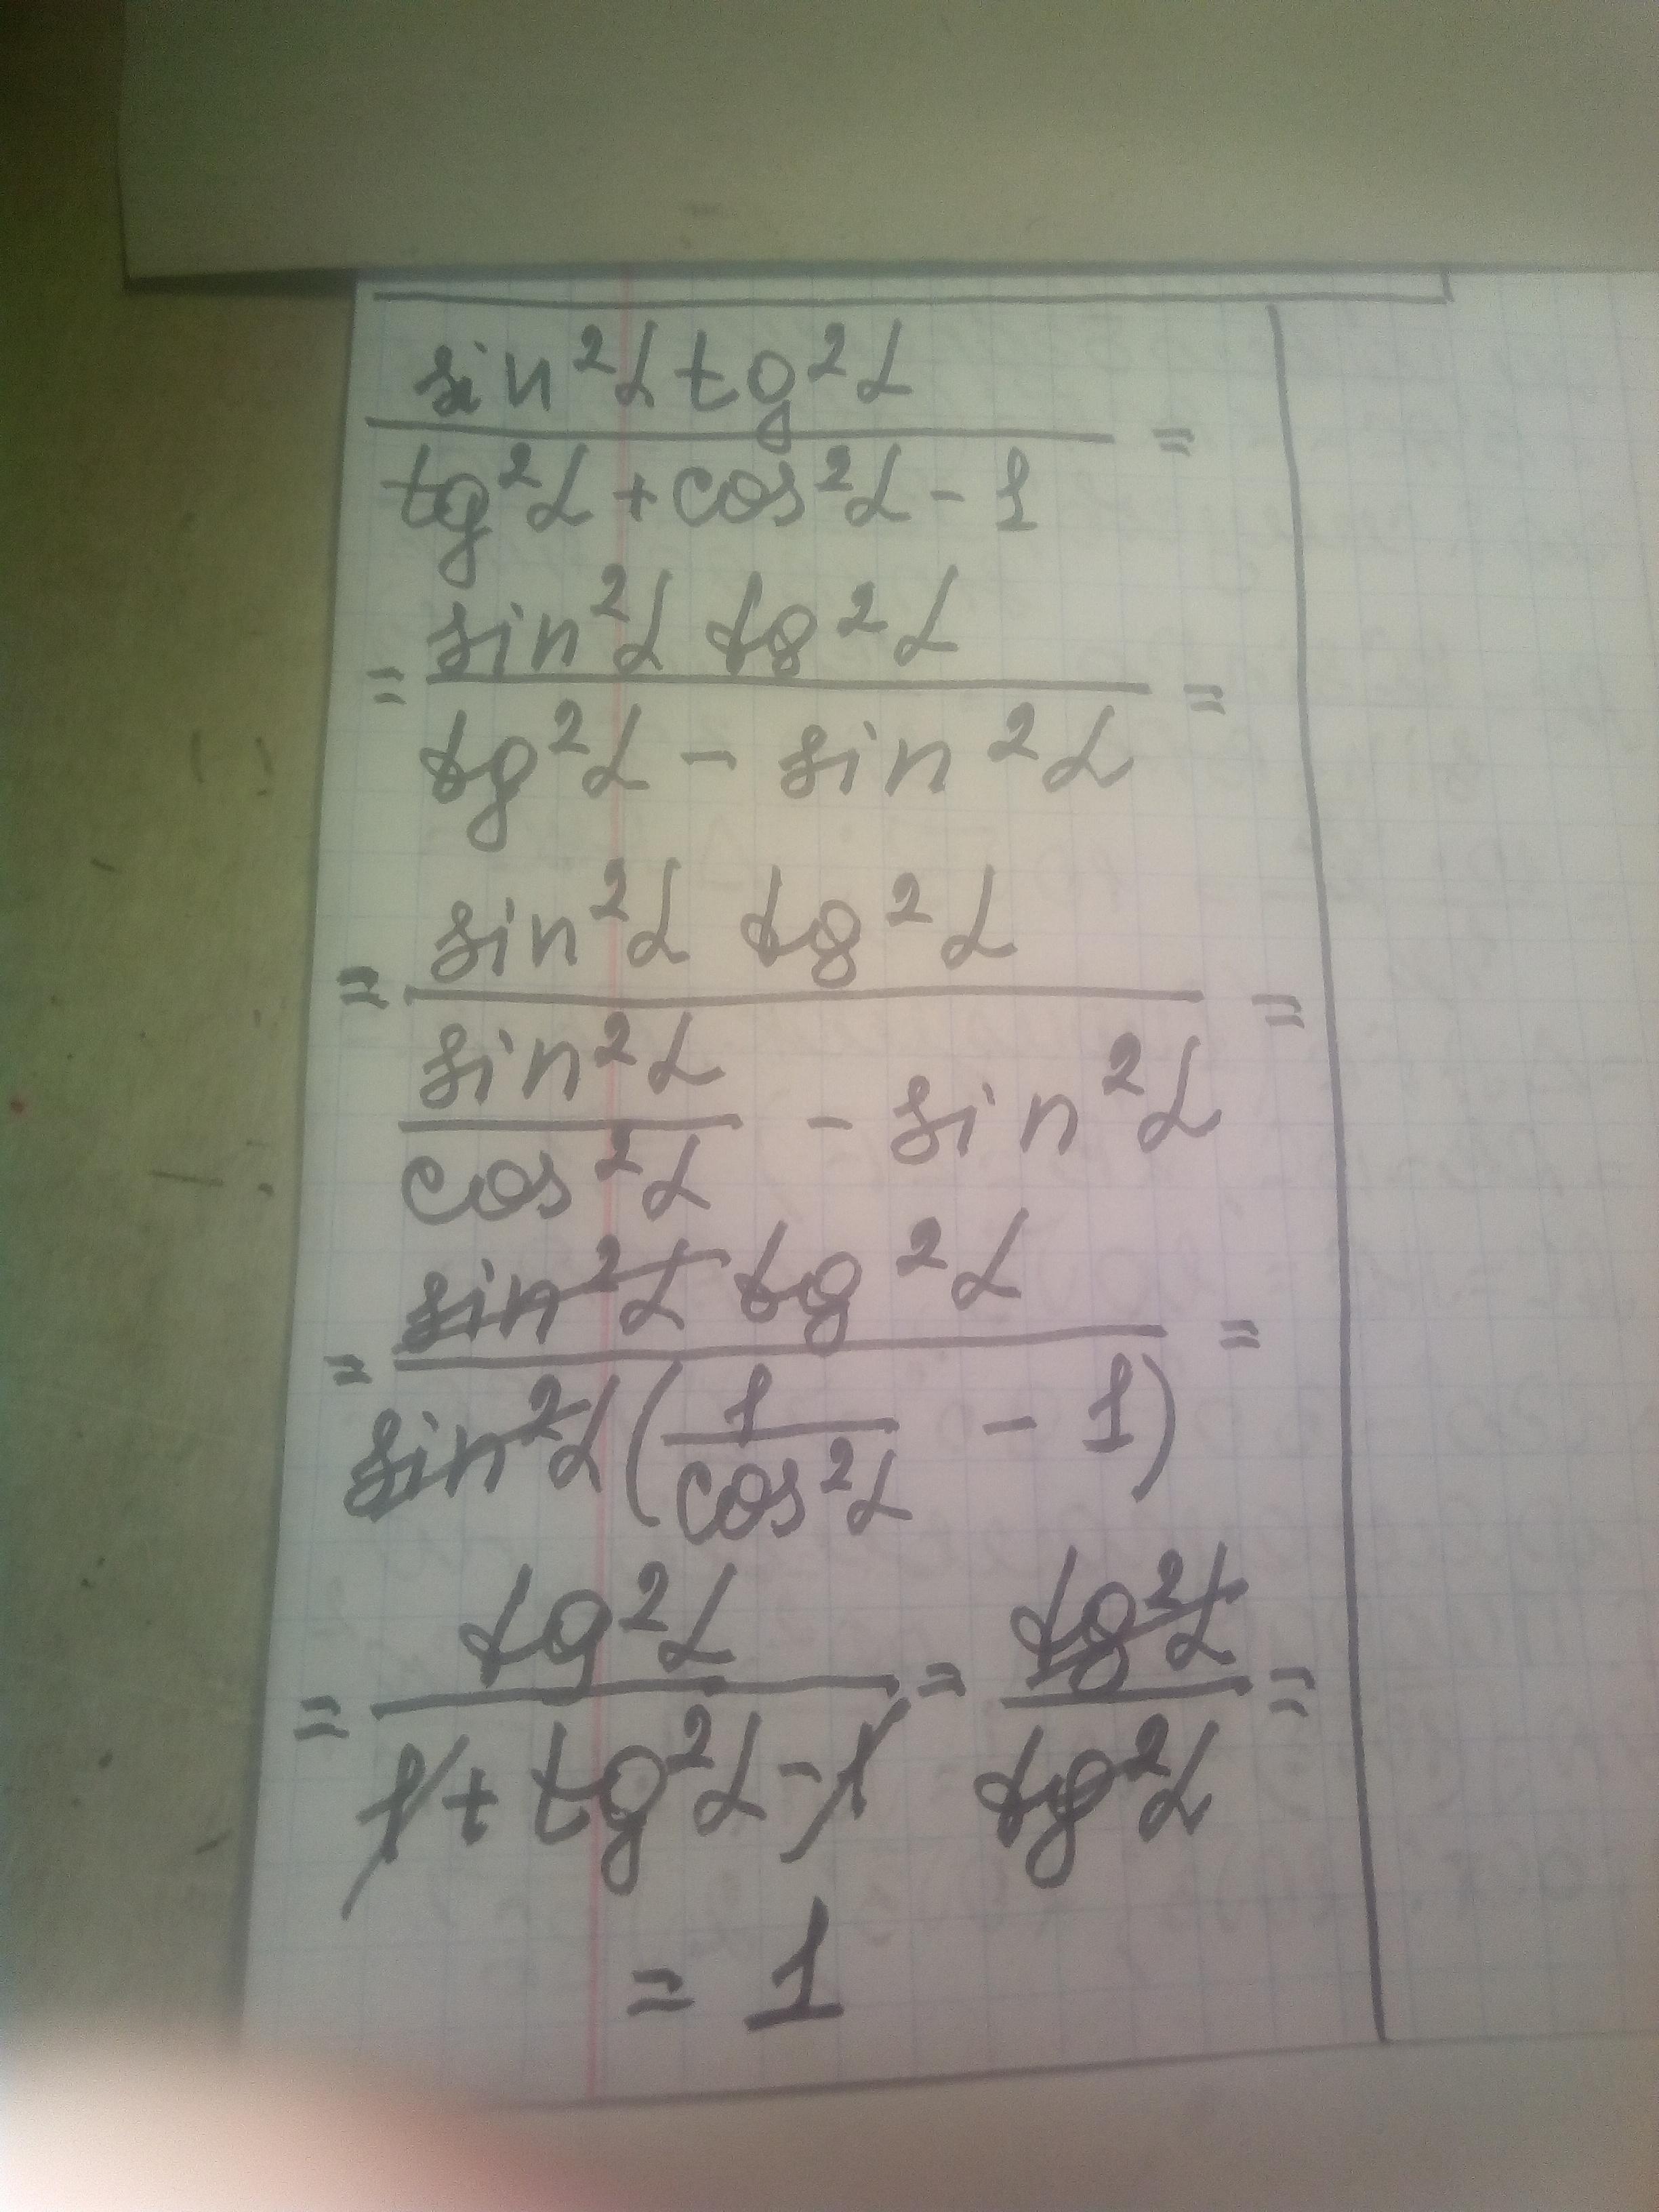 sin²α tg²α
tg²α + cos²α - 1 =
= sin²α tg²α
tg²α - sin²α =
= sin²α tg²α =
sin²α
cos²α - sin²α
= sin²α tg²α =
sin²α ( 1
cos²α - 1 )
= tg²α = tg²α =
1 + tg²α - 1 tg²α
= 1